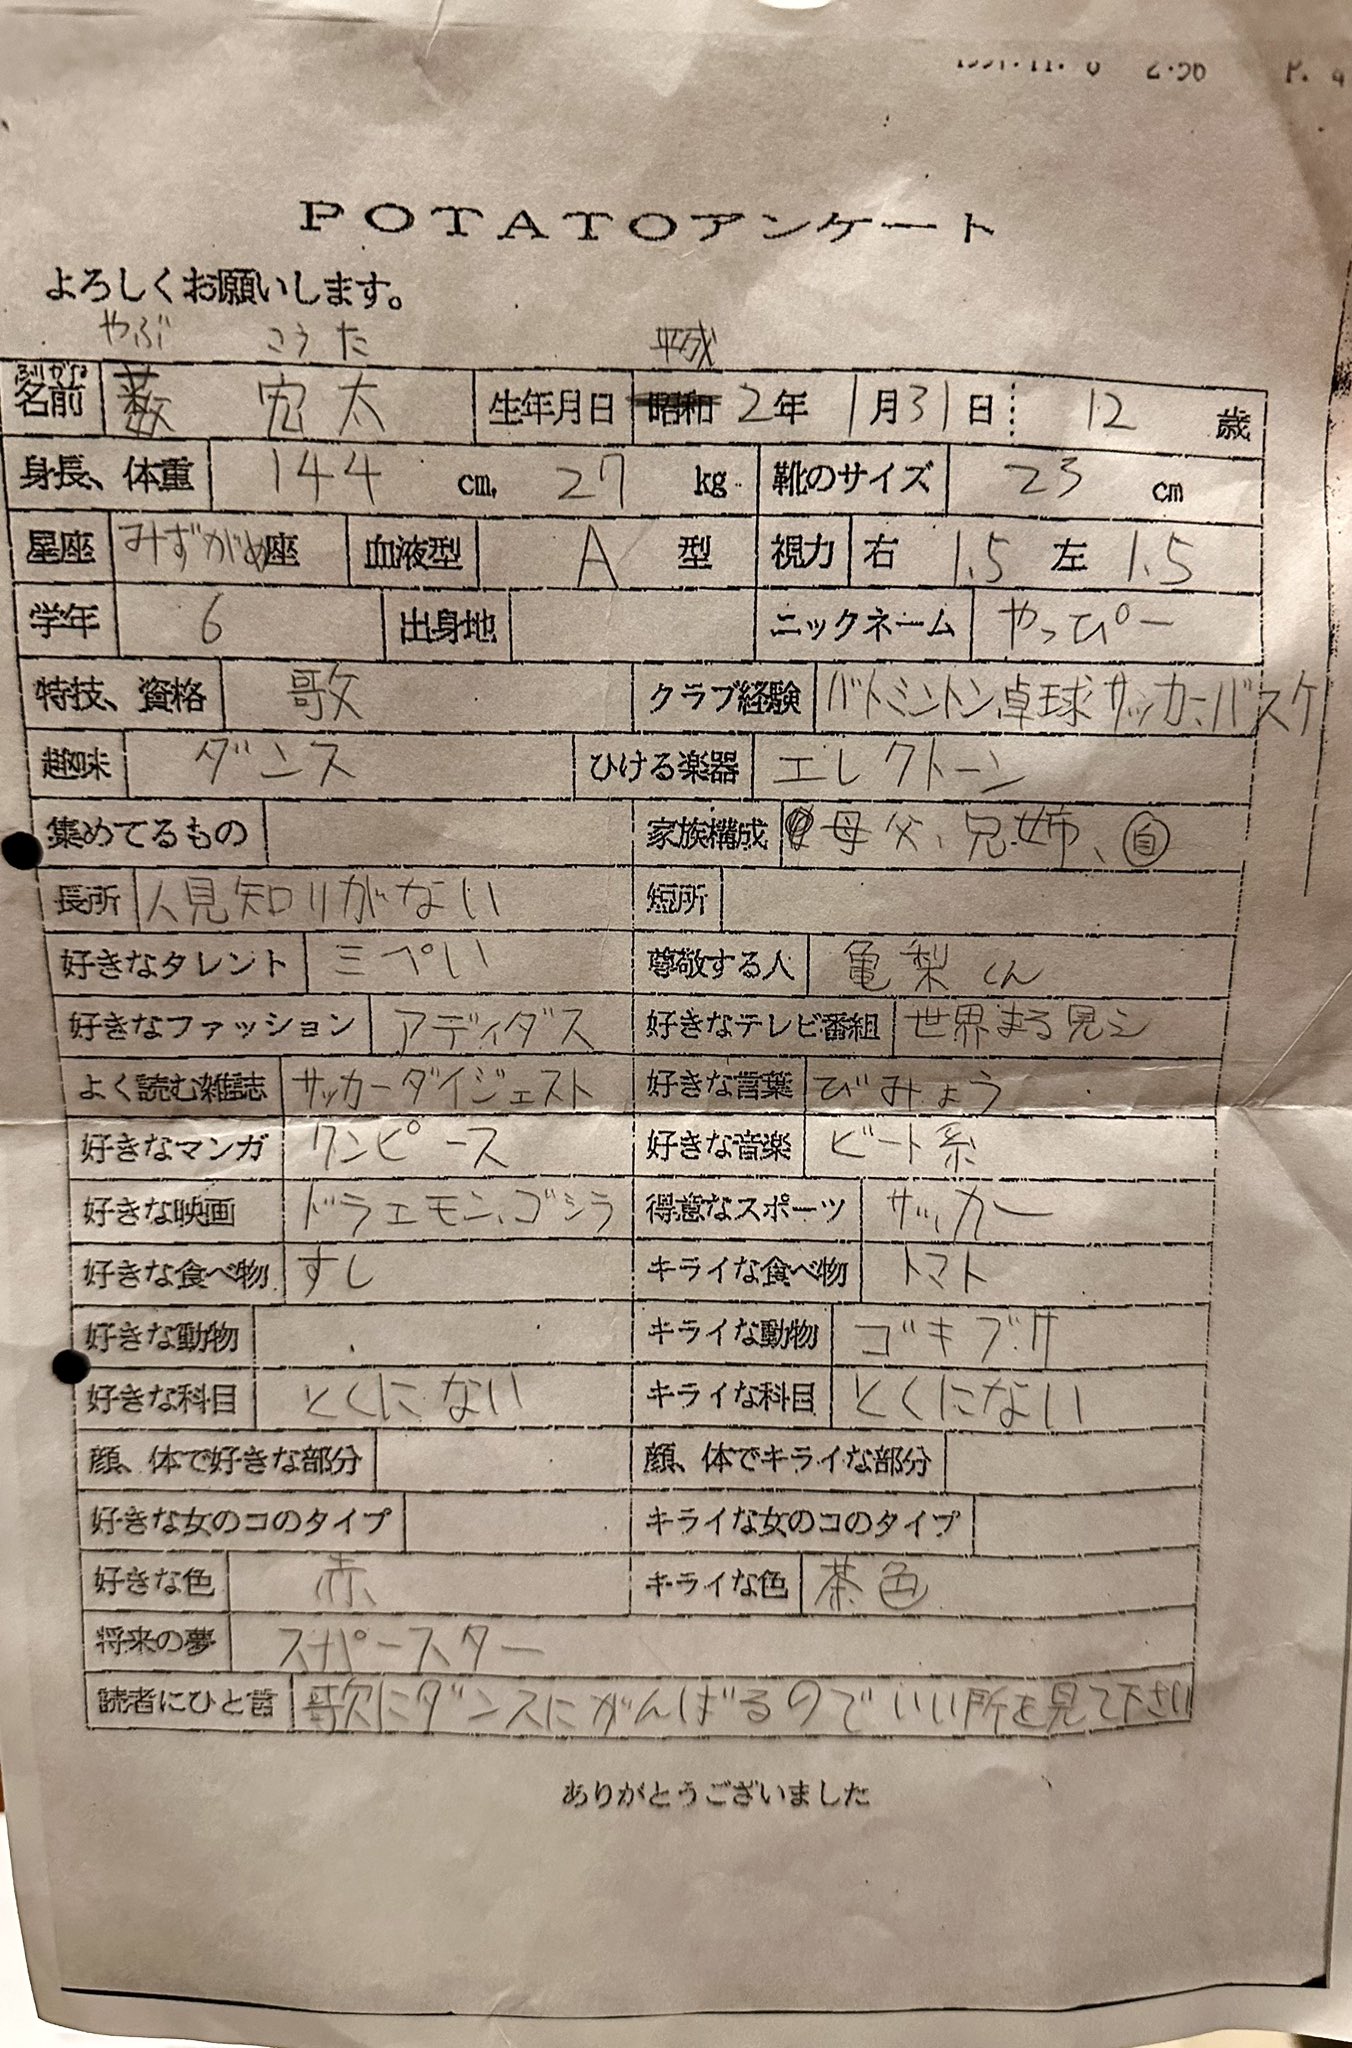 P. 4
POTATOアンケート
よろしくお願いします。
やぶ こうた 平成
ふりがな
名前 薮 宏太 生年月日 昭和 2年 1月31日 12 歳
身長、体重 144 cm, 27 kg 靴のサイズ 23 cm
星座 みずがめ座 血液型 A 型 視力 右 1.5 左 1.5
学年 6 出身地 ニックネーム やっぴー
特技、資格 歌 クラブ経験 バトミントン卓球サッカーバスケ
趣味 ダンス ひける楽器 エレクトーン
集めてるもの 家族構成 母父、兄姉、自
長所 人見知りがない 短所
好きなタレント ミッぺい 尊敬する人 亀梨くん
好きなファッション アディダス 好きなテレビ番組 世界まる見え
よく読む雑誌 サッカーダイジェスト 好きな言葉 びみょう
好きなマンガ ワンピース 好きな音楽 ビート系
好きな映画 ドラエモン、ゴジラ 得意なスポーツ サッカー
好きな食べ物 すし キライな食べ物 トマト
好きな動物 キライな動物 ゴキブリ
好きな科目 とくにない キライな科目 とくにない
顔、体で好きな部分 顔、体でキライな部分
好きな女のコのタイプ キライな女のコのタイプ
好きな色 赤 キライな色 茶色
将来の夢 スパースター
読者にひと言 歌にダンスにがんばるのでいい所を見て下さい
ありがとうございました